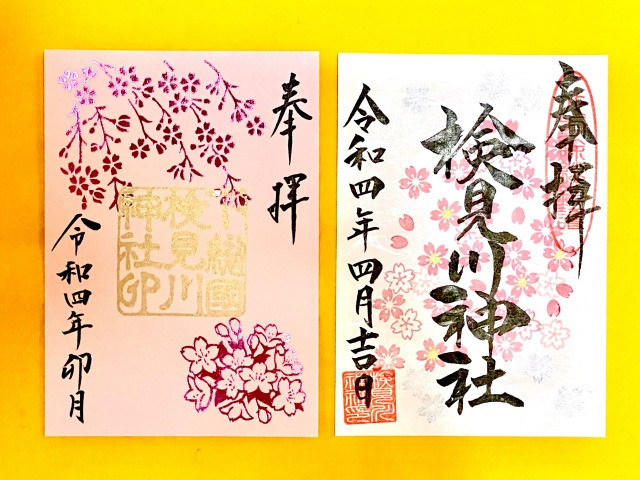 奉拝
下総国
検見川
神社卯
令和四年卯月
奉拝
検見川神社
令和四年四月吉日